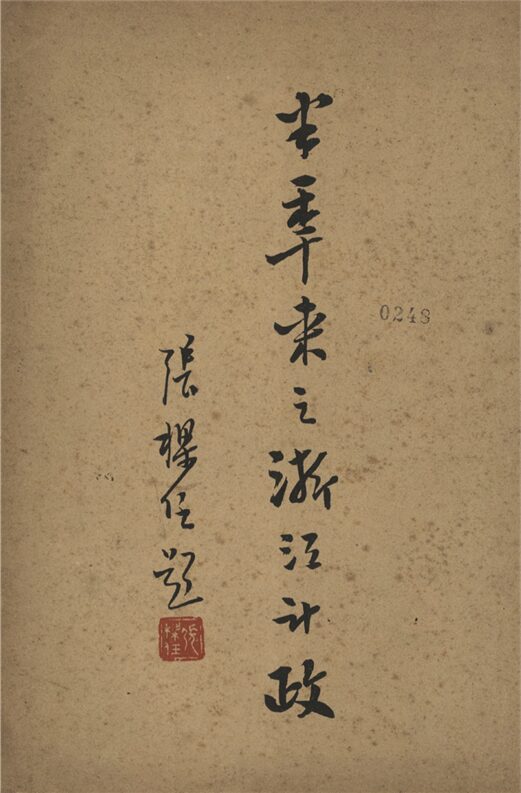 半年来之浙江計政
0248
張樑任題
張樑任